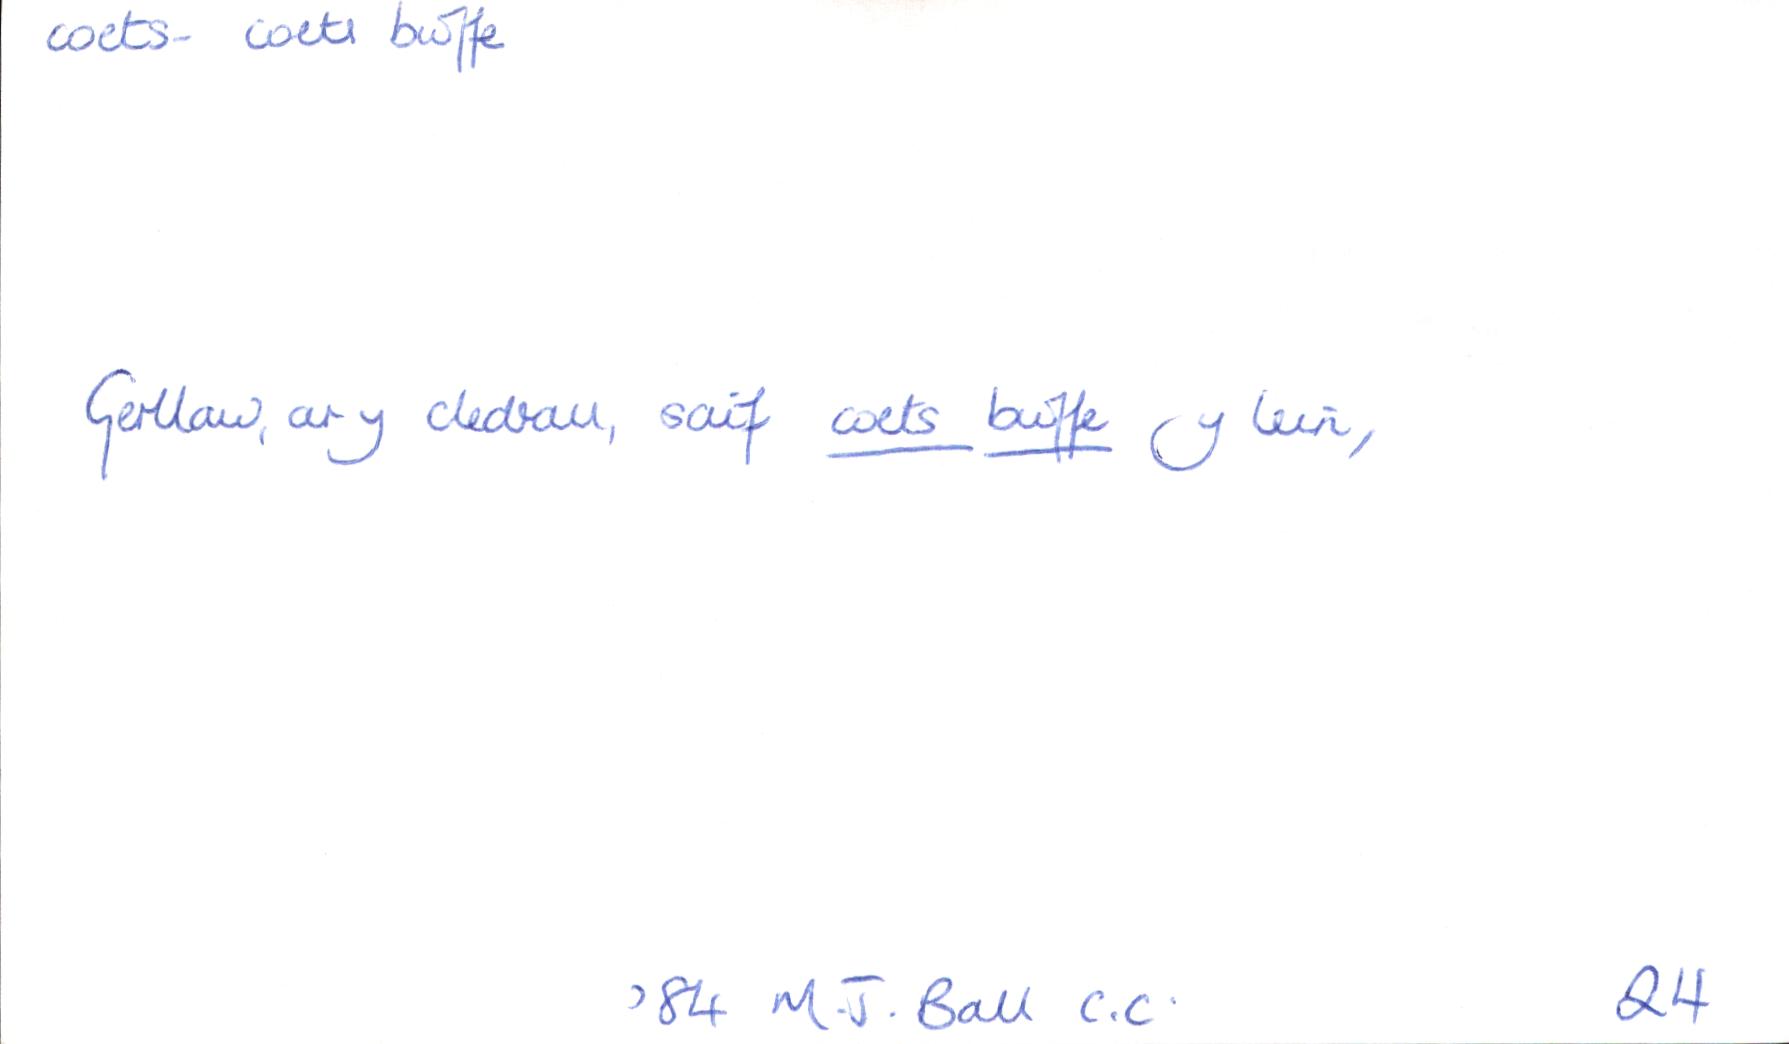 coets- coets bwffe
Gerllaw, ar y cledrau, saif coets bwffe y lein,
'84 M.J. Ball C.C. 24